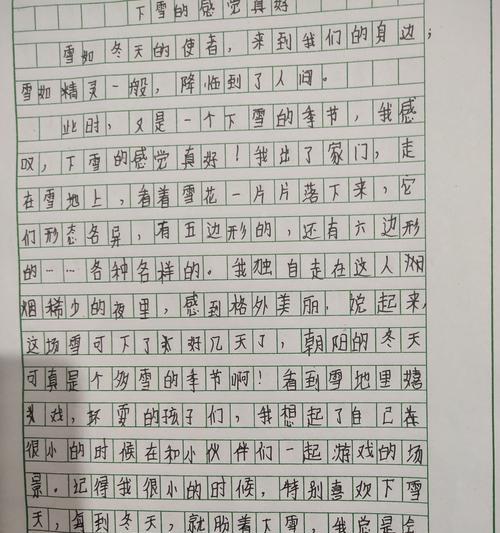 下雪的感觉真好
雪如冬天的使者，来到我们的身边；
雪如精灵一般，降临到了人间。
此时，又是一个下雪的季节，我感
叹，下雪的感觉真好！我出了家门，走
在雪地上，看着雪花一片片落下来，它
们形态各异，有五边形的，还有六边形
的……各种各样的。我独自走在这人烟
烟稀少的夜里，感到格外美丽，说起来，
这场雪可下了好几天了，朝阳的冬天
可真是个多雪的季节啊！看到雪地里嬉
戏，玩耍的孩子们，我想起了自己在
很小的时候在和小伙伴们一起游戏的场
景。记得我很小的时候，特别喜欢下雪
天，每到冬天，就盼着下雪，我总是会